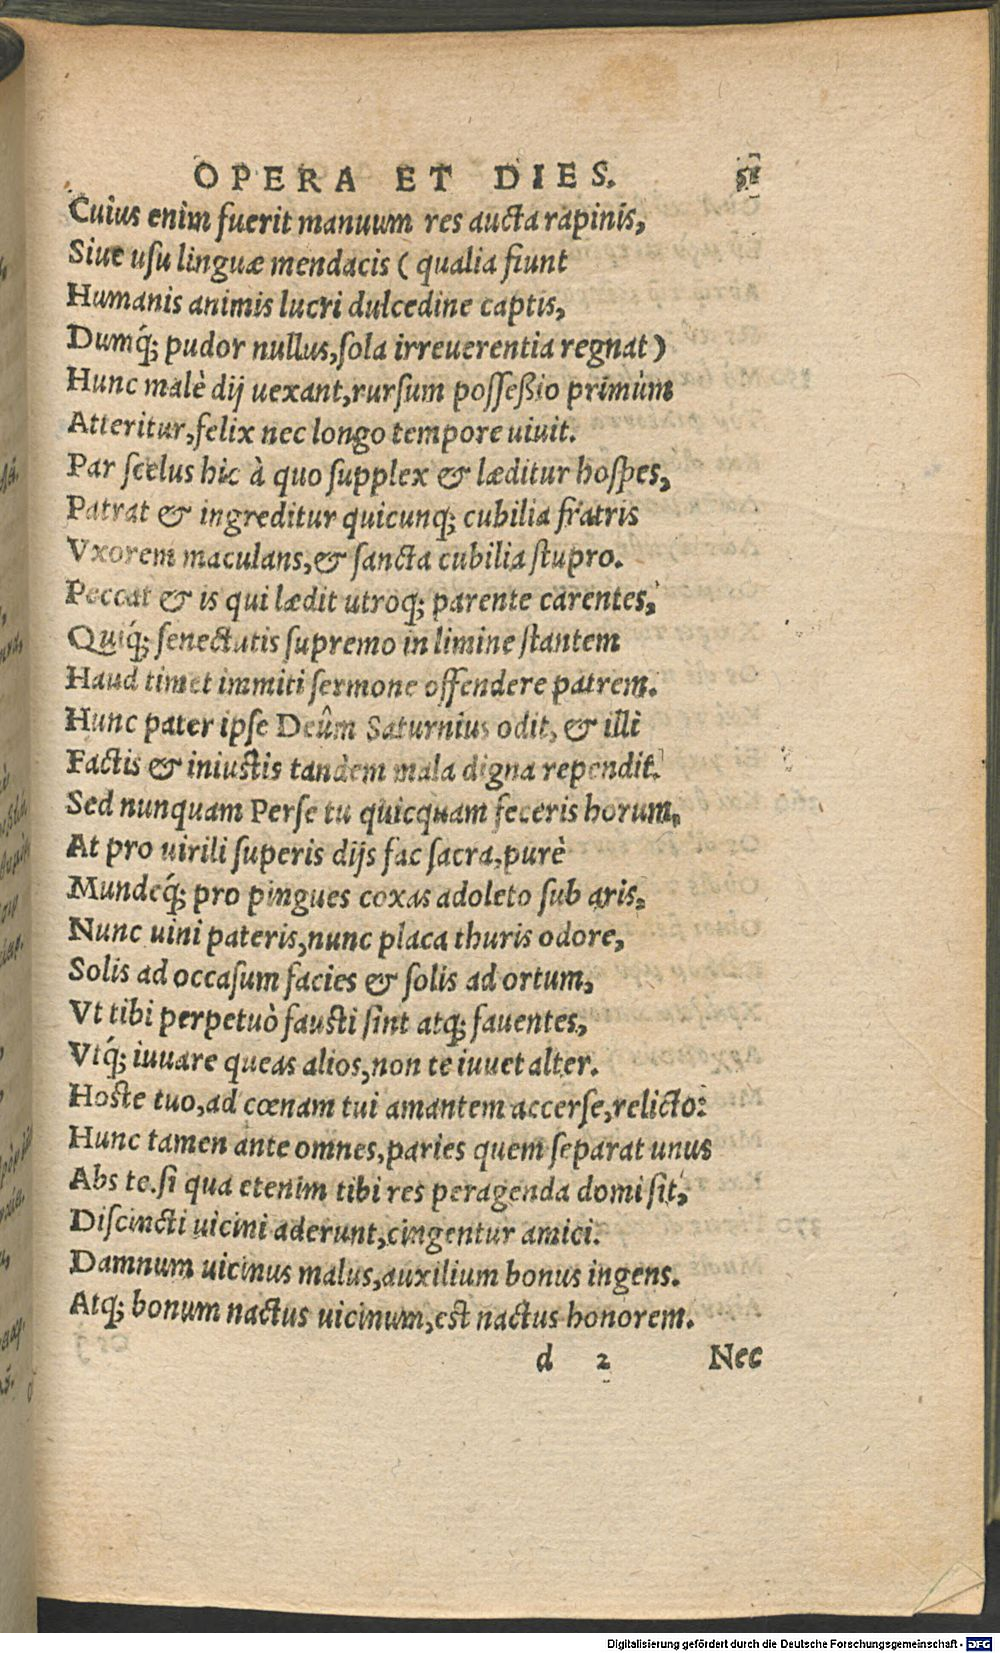 OPERA ET DIES. 51
Cuius enim fuerit manuum res aucta rapinis,
Siue usu linguæ mendacis ( qualia fiunt
Humanis animis lucri dulcedine captis,
Dumq́; pudor nullus, sola irreuerentia regnat )
Hunc malè dij uexant, rursum posseßio primùm
Atteritur, felix nec longo tempore uiuit.
Par scelus hic à quo supplex & læditur hospes,
Patrat & ingreditur quicunq; cubilia fratris
Vxorem maculans, & sancta cubilia stupro.
Peccat & is qui lædit utroq; parente carentes,
Quiq́; senectutis supremo in limine stantem
Haud timet immiti sermone offendere patrem.
Hunc pater ipse Deûm Saturnius odit, & illi
Factis & iniustis tandem mala digna rependit.
Sed nunquam Perse tu quicquam feceris horum,
At pro uirili superis dijs fac sacra, purè
Mundeq́; pro pingues coxas adoleto sub aris,
Nunc uini pateris, nunc placa thuris odore,
Solis ad occasum facies & solis ad ortum,
Vt tibi perpetuò fausti sint atq; fauentes,
Vtq́; iuuare queas alios, non te iuuet alter.
Hoste tuo, ad cœnam tui amantem accerse, relicto:
Hunc tamen ante omnes, paries quem separat unus
Abs te. si qua etenim tibi res peragenda domi sit,
Discincti uicini aderunt, cingentur amici.
Damnum uicinus malus, auxilium bonus ingens.
Atq; bonum nactus uicinum, est nactus honorem.
d 2 Nec
Digitalisierung gefördert durch die Deutsche Forschungsgemeinschaft - DFG